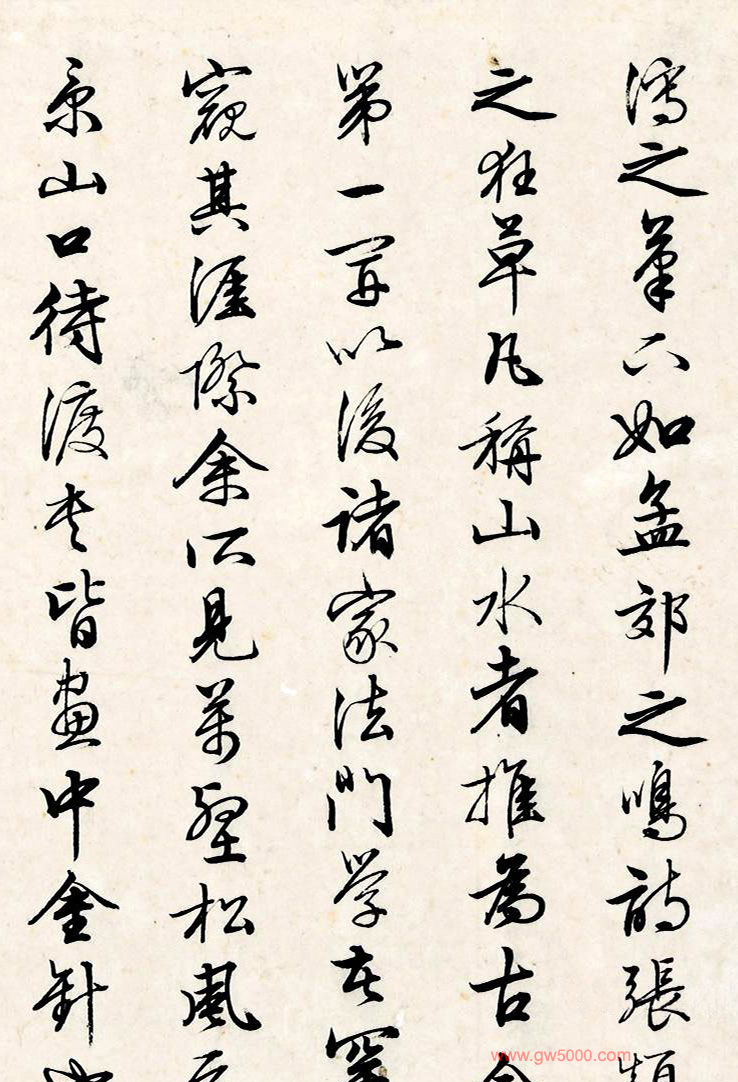 瀉之筆不如孟郊之鳴詩張顛
之狂草凡稱山水者推為古今
第一耳以後諸家法門學者罕
窺其涯際余所見萬壑松風
京山口待渡卷皆畫中金針也
www.gw5000.com